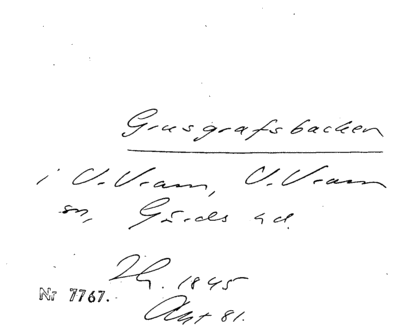 Grusgrafsbacken
i V. Vram, V. Vram
sn, Gärds hd.
Lh. 1845
Nr 7767.
Akt 81.